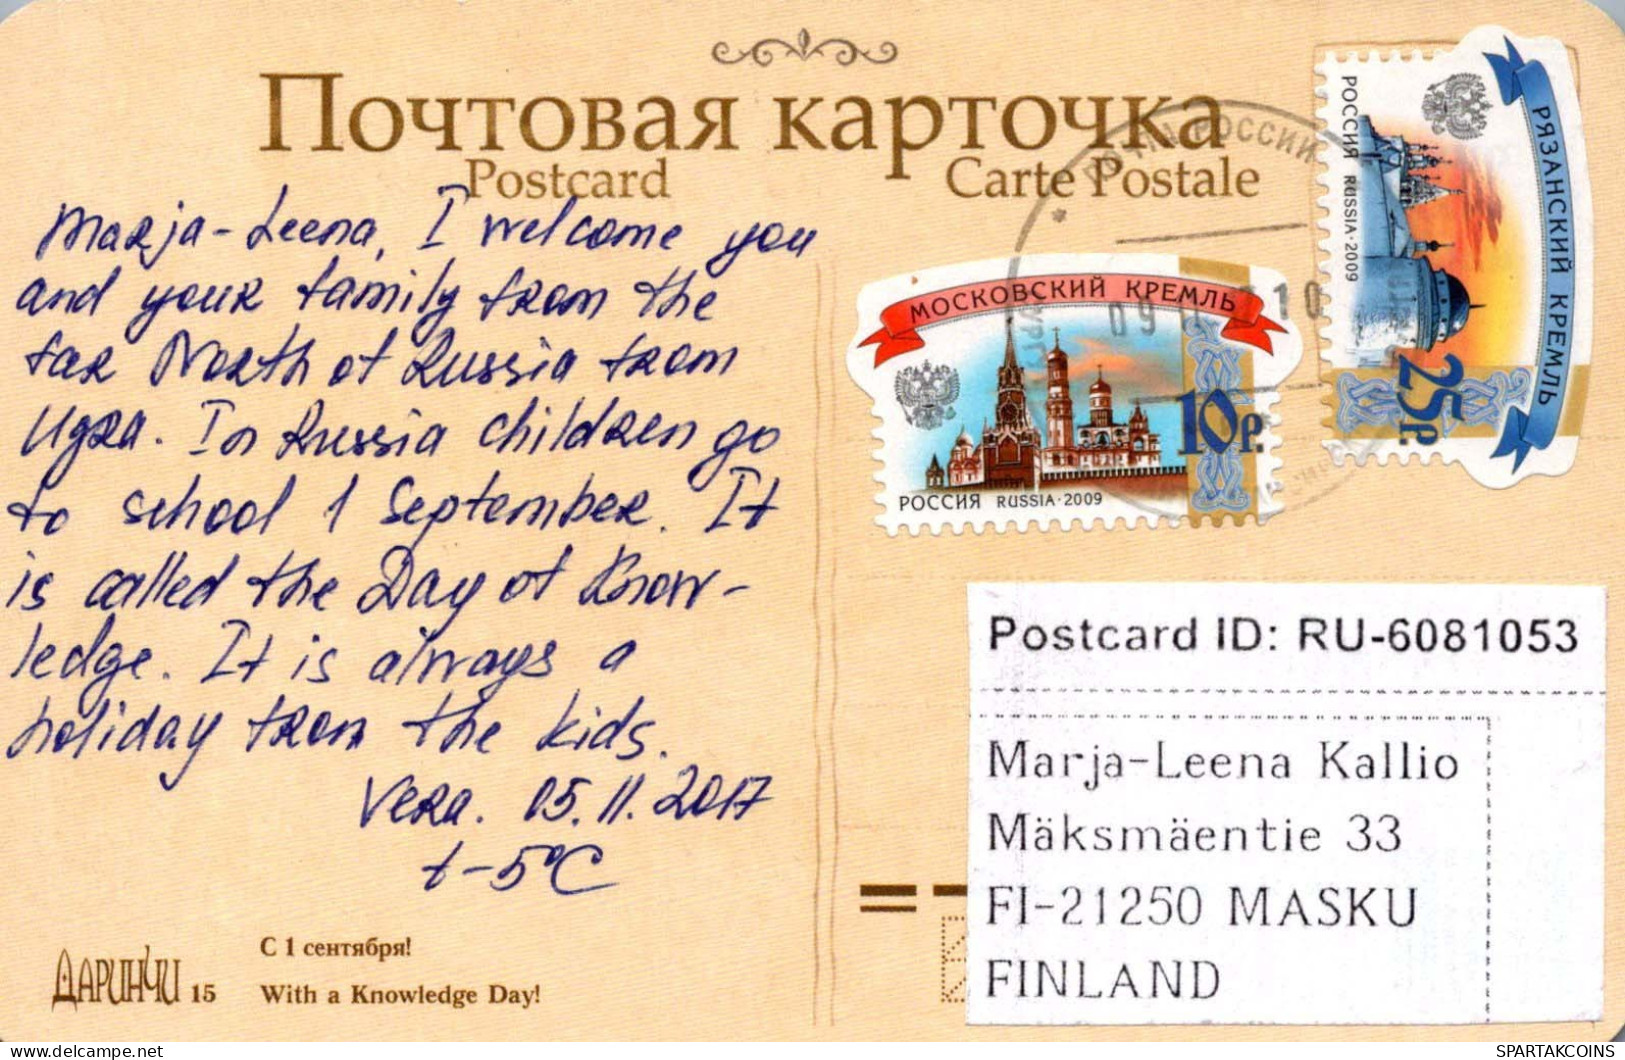 Почтовая карточка
Postcard
Carte Postale
Marja-Leena, I welcome you
and your family from the
far North of Russia from
Ugra. In Russia children go
to school 1 September. It
is called the Day of Know-
ledge. It is always a
holiday from the kids.
Vera. 05.11.2017
t-5°C
ДАРИНЧИ 15
С 1 сентября!
With a Knowledge Day!
МОСКОВСКИЙ КРЕМЛЬ
10р.
РОССИЯ RUSSIA·2009
РЯЗАНСКИЙ КРЕМЛЬ
25р.
РОССИЯ RUSSIA·2009
ПОЧТА РОССИИ
09 11
Postcard ID: RU-6081053
Marja-Leena Kallio
Mäksmäentie 33
FI-21250 MASKU
FINLAND
delcampe.net
SPARTAKCOINS